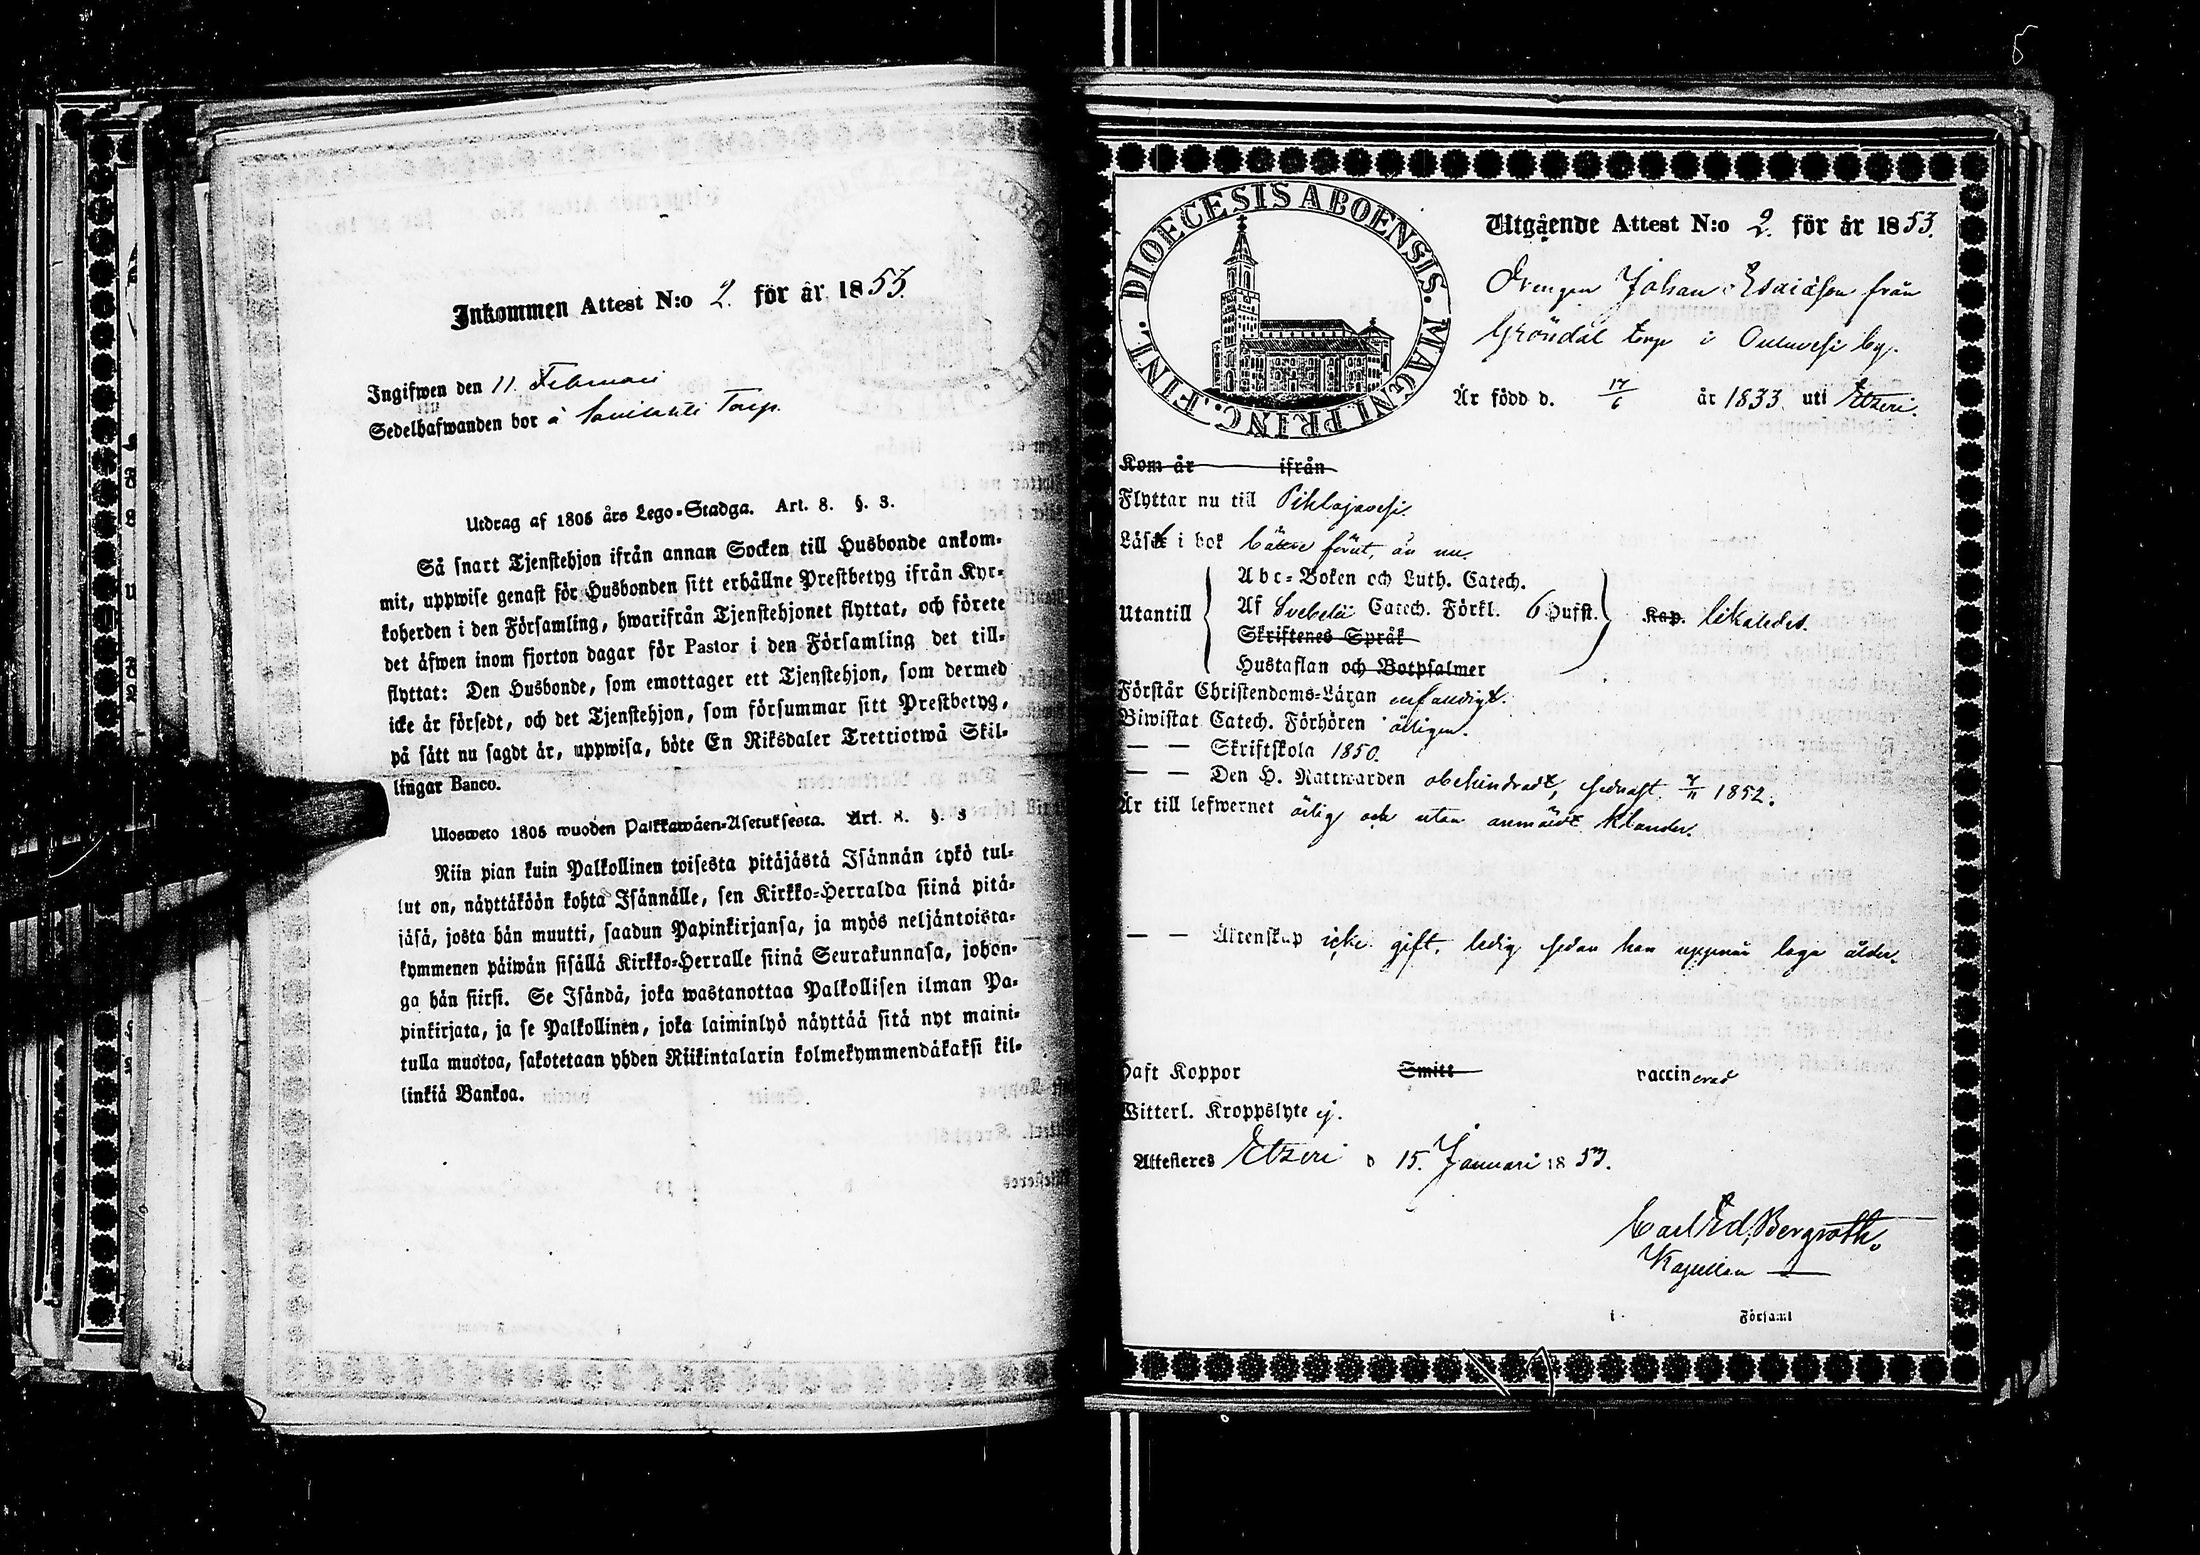 Inkommen Attest N:o 2. för år 1853.
Ingifwen den 11. Februari
Sedelhafwanden bor å Torp.
Utdrag af 1805 års Lego-Stadga. Art. 8. §. 3.
Så snart Tjenstehjon ifrån annan Socken till Husbonde ankom-
mit, uppwise genast för Husbonden sitt erhållne Prestbetyg ifrån Kyr-
koherden i den Församling, hwarifrån Tjenstehjonet flyttat, och förete
det äfwen inom fjorton dagar för Pastor i den Församling det till-
flyttat: Den Husbonde, som emottager ett Tjenstehjon, som dermed
icke är försedt, och det Tjenstehjon, som försummar sitt Prestbetyg,
på sätt nu sagdt är, uppwisa, böte En Riksdaler Trettiotwå Skil-
lingar Banco.
Ulosweto 1805 wuoden Palkkawäen-Asetuksesta. Art. 8. §. 3
Niin pian kuin Palkollinen toisesta pitäjästä Isännän tykö tul-
lut on, näyttäköön kohta Isännälle, sen Kirkko-Herralda siinä pitä-
jäsä, josta hän muutti, saadun Papinkirjansa, ja myös neljäntoista-
kymmenen päiwän sisällä Kirkko-Herralle siinä Seurakunnasa, johon-
ga hän siirsi. Se Isändä, joka wastanottaa Palkollisen ilman Pa-
pinkirjata, ja se Palkollinen, joka laiminlyö näyttää sitä nyt maini-
tulla muotoa, sakotetaan yhden Riikintalarin kolmekymmendäkaksi kil-
linkiä Bankoa.
5
DIOECESIS ABOENSIS. MAGNI. PRINC. FINL.
Utgående Attest N:o 2. för år 1853.
Drengen Johan Esaiäson från
Gröndal torp i Ouluvesi by.
Är född d. 17/6 år 1833. uti Etzeri.
Kom år ifrån
Flyttar nu till Pihlajavesi.
Läst i bok bättre förut, än nu.
Abc-Boken och Luth. Catech.
Utantill Af Svebelii Catech. Förkl. 6 Hufst. Kap. likaledes.
Skriftenes Språk
Hustaflan och Botpsalmer
Förstår Christendoms-Läran enfaldigt.
Biwistat Catech. Förhören årligen.
— — Skriftskola 1850.
— — Den H. Nattwarden obehindradt, sednast 7/11 1852.
Är till lefwernet ärlig och utan anmäldt klander.
— — Äktenskap icke gift, ledig sedan han uppnår laga ålder.
Haft Koppor Smitt vaccinerad
Witterl. Kroppslyte ej.
Attesteres Etzeri d 15. Januari 1853.
Carl Ed. Bergroth.
Kapellan
i Församl